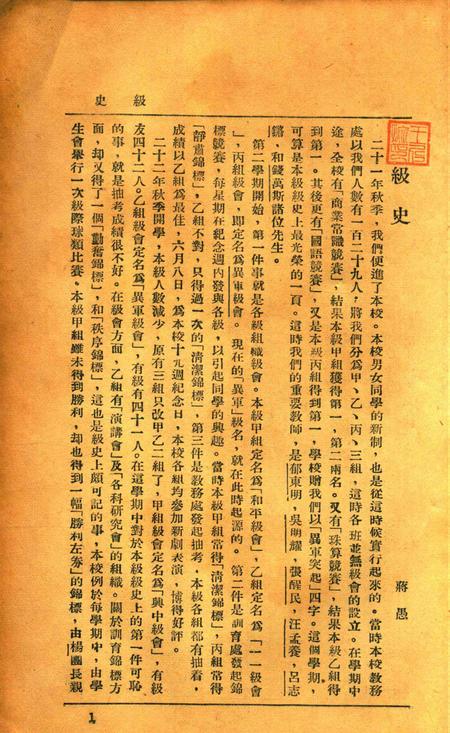 級史
級史
蔣愚
二十一年秋季，我們便進了本校。本校男女同學的新制，也是從這時候實行起來的。當時本校教務
處以我們人數有一百二十九人，將我們分爲甲、乙、丙、三組，這時各班並無級會的設立。在學期中
途，全校有「商業常識競賽」，結果本級甲組獲得第一，第二兩名。又有「珠算競賽」，結果本級乙組得
到第一。其後更有「國語競賽」，又是本級丙組得到第一，學校贈我們以「異軍突起」四字。這個學期，
可算是本級級史上最光榮的一頁。這時我們的重要教師，是郁東明，吳明耀，張醒民，汪孟養，呂志
鏘，和錢萬斯諸位先生。
第二學期開始，第一件事就是各級組織級會。本級甲組定名爲「和平級會」，乙組定名爲「一一級會
」，丙組級會，即定名爲異軍級會。現在的「異軍」級名，就在此時起源的。第二件是訓育處發起錦
標競賽，每星期在紀念週內發與各級，以引起同學的興趣。當時本級甲組常得「清潔錦標」，丙組常得
「靜肅錦標」，乙組不對，只得過一次的「清潔錦標」，第三件是教務處發起抽考，本級各組都有抽着，
成績以乙組爲最佳，六月八日，爲本校十九週紀念日，本校各組均參加新劇表演，博得好評。
二十二年秋季開學，本級人數減少，原有三組只改甲乙二組了，甲組級會定名爲「興中級會」，有級
友四十二人。乙組級會定名爲「異軍級會」，有級友四十一人。在這學期中對於本級級史上的第一件可恥
的事，就是抽考成績很不好。在級會方面，乙組有「演講會」及「各科研究會」的組織。關於訓育錦標方
面，却又得了一個「勤奮錦標」，和「秩序錦標」，這也是級史上頗可記的事，本校例於每學期中，由學
生會舉行一次級際球類比賽。本級甲組雖未得到勝利，却也得到一幅「勝利左券」的錦標，由楊國長親
1